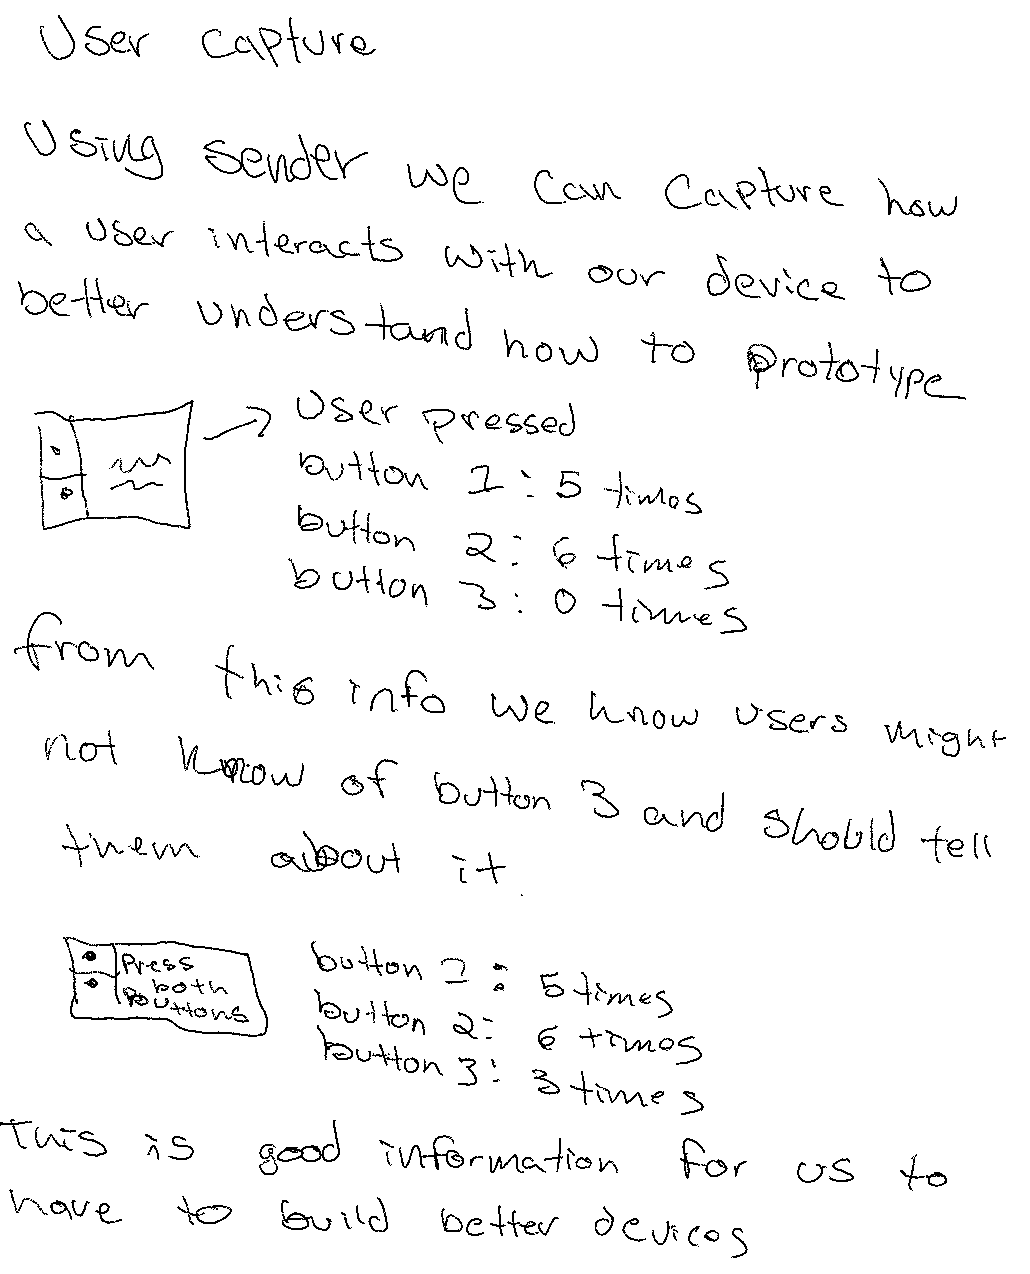 User capture
Using sender we can capture how
a user interacts with our device to
better understand how to prototype
User pressed
button 1: 5 times
button 2: 6 times
button 3: 0 times
from this info we know users might
not know of button 3 and should tell
them about it.
Press
both
buttons
button 1: 5 times
button 2: 6 times
button 3: 3 times
This is good information for us to
have to build better devices